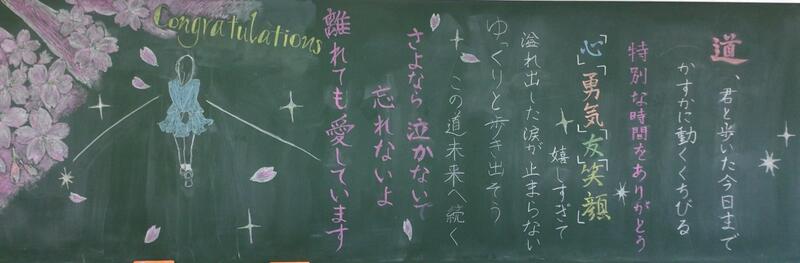 道、君と歩いた今日まで
かすかに動くくちびる
特別な時間をありがとう
「心」「勇気」「友」「笑顔」
嬉しすぎて
溢れ出した涙が止まらない
ゆっくりと歩き出そう
この道未来へ続く
さよなら 泣かないで
忘れないよ
離れても愛しています
Congratulations